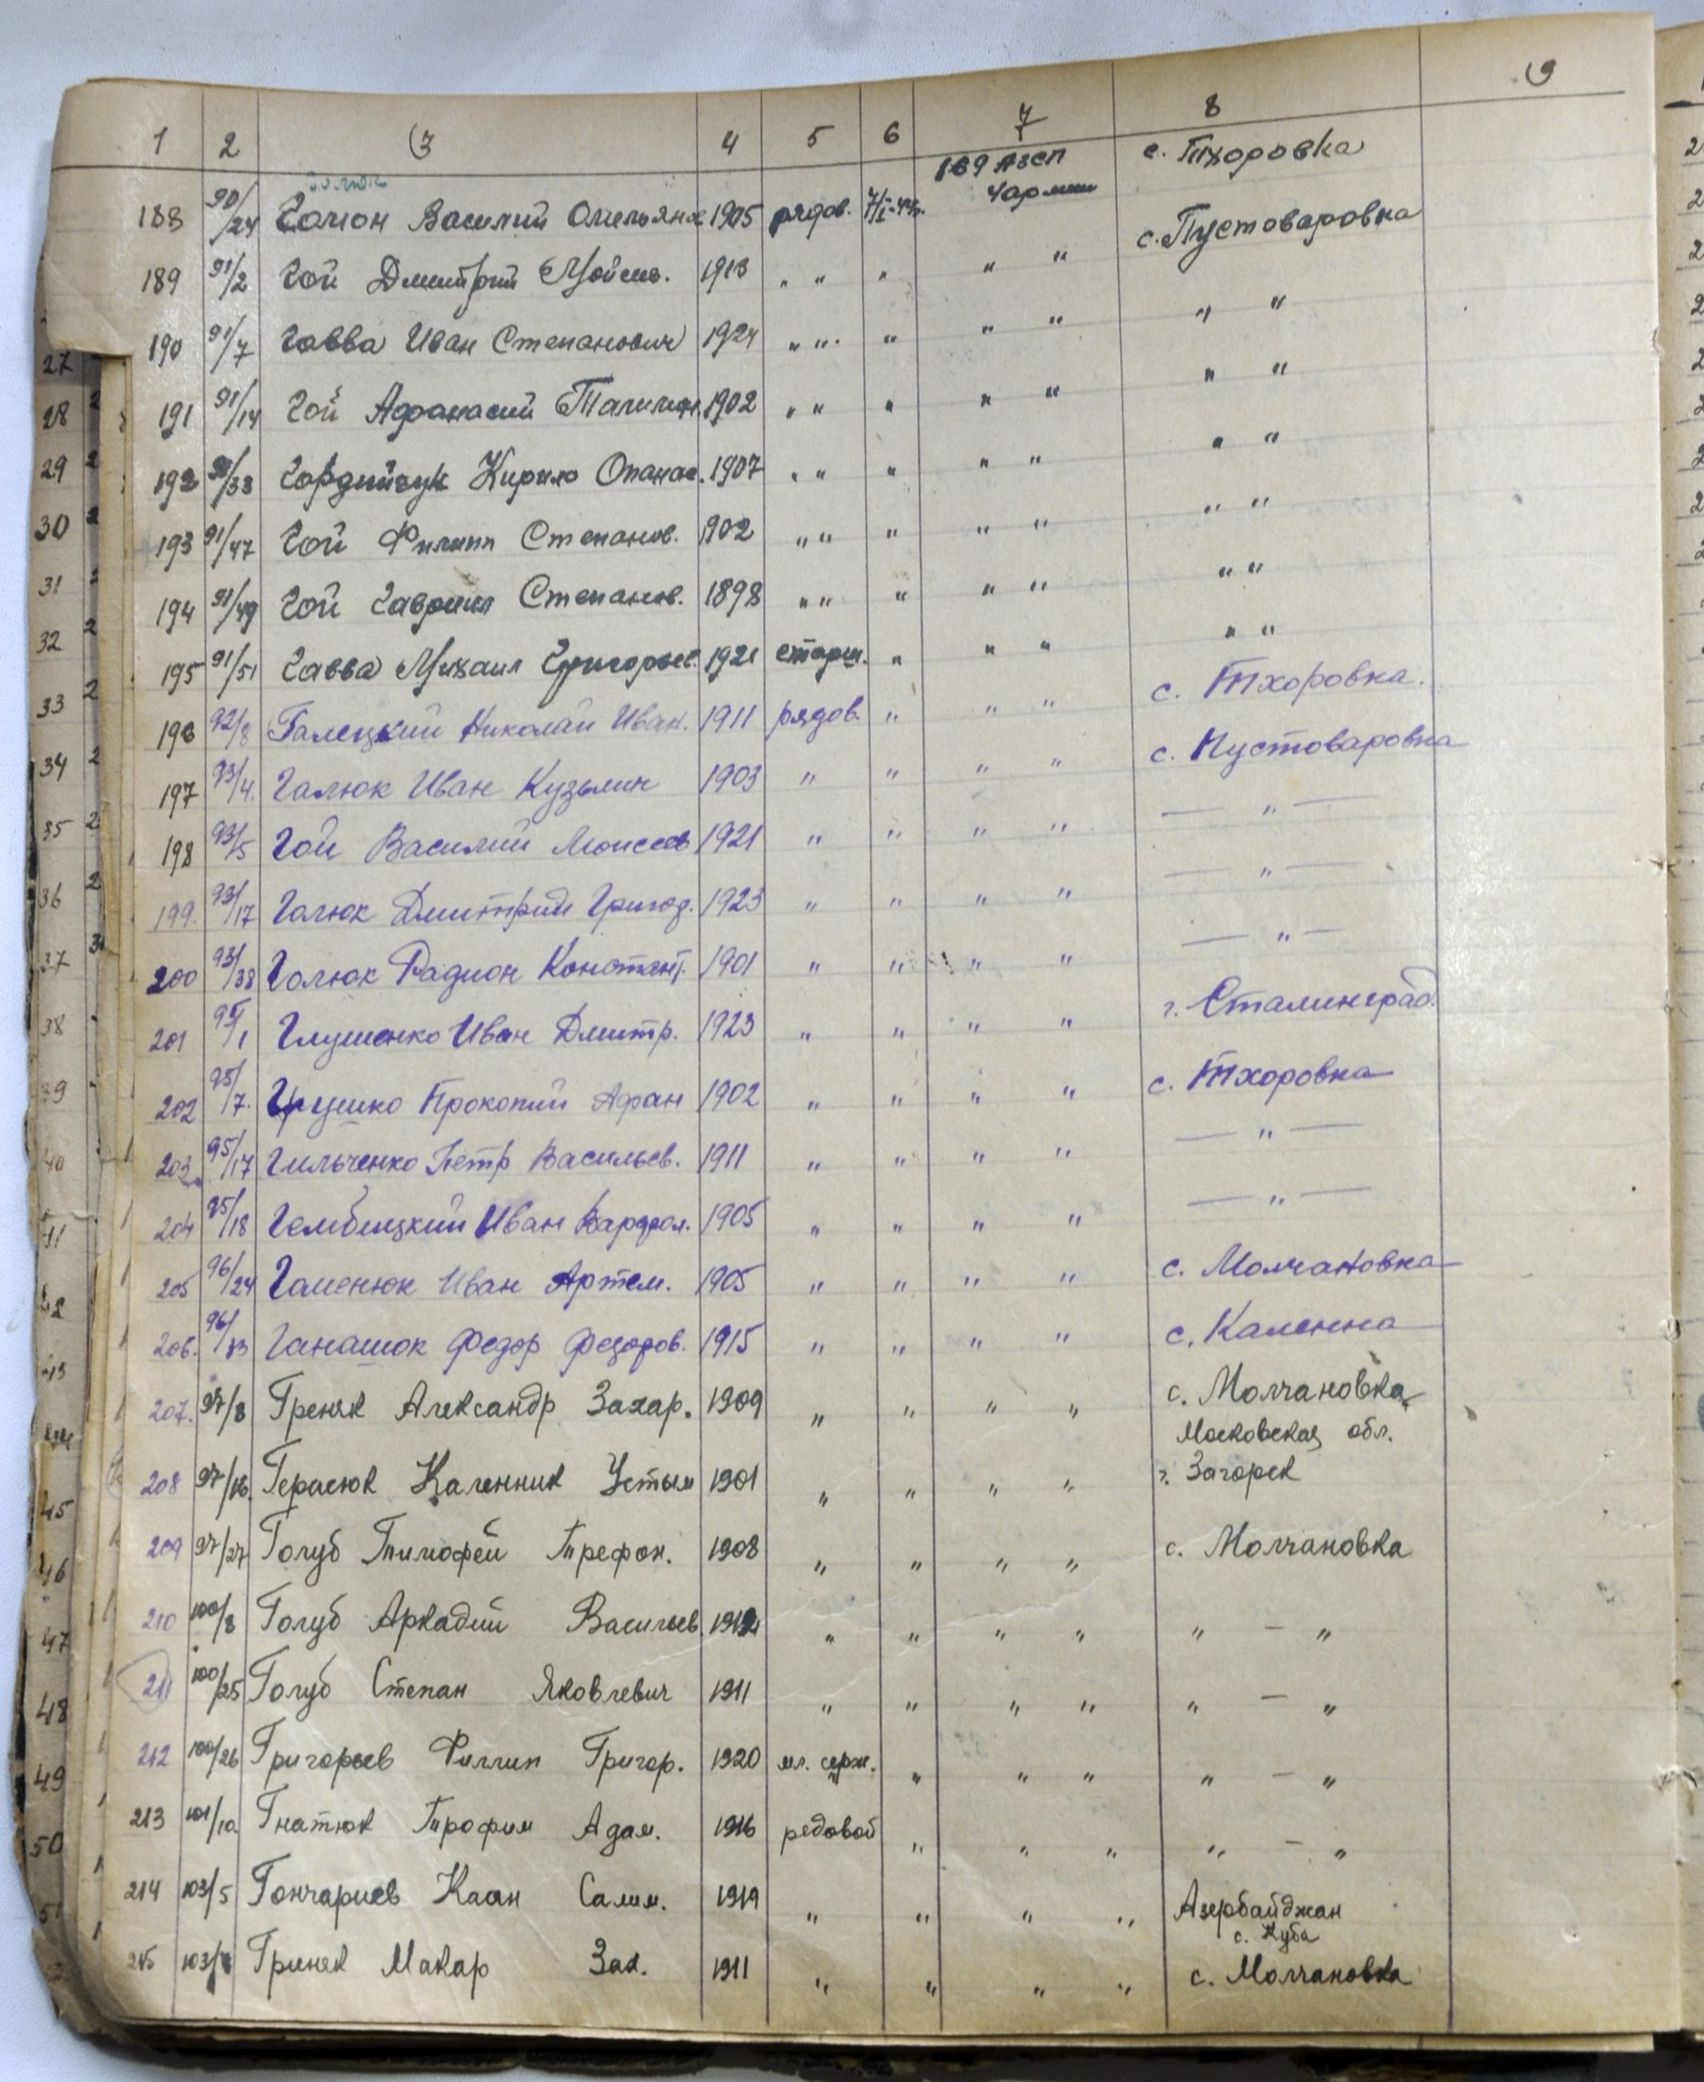 1 2 3 4 5 6 7 8 9
188 90/24 Василий Омельянов 1905 рядов. 169 АЗСП 4 армии с. Тхоровка
189 91/2 Гой Дмитрий Мойсев. 1913 " " " " " с. Пустоваровка
190 91/7 Гавва Иван Степанович 1924 " " " " " " "
191 91/14 Гой Афанасий 1902 " " " " " " "
192 Гордийчук Кирило Опанас. 1907 " " " " " " "
193 91/47 Гой Филипп Степанов. 1902 " " " " " " "
194 91/49 Гой Гавриил Степанов. 1898 " " " " " " "
195 91/51 Гавва Михаил Григорьев. 1921 старш. " " " " "
196 92/8 Галецкий Николай Иван. 1911 рядов. " " " с. Тхоровка.
197 93/4. Галюк Иван Кузьмич 1903 " " " " с. Пустоваровка
198 93/5 Гой Василий Моисеев 1921 " " " " — " —
199. 93/17 Галюк Дмитрий Григор. 1923 " " " " — " —
200 93/38 Голюк Радион Констант.. 1901 " " " " — " —
201 Глушенко Иван Дмитр. 1923 " " " " г. Сталинград.
202 95/7. Прокопий Афан 1902 " " " " с. Тхоровка
203 95/17 Гильченко Петр Васильев. 1911 " " " " — " —
204 95/18 Гембицкий Иван Варфол. 1905 " " " " — " —
205 96/24 Гаменюк Иван Артем. 1905 " " " " с. Молчановка
206. Ганашок Федор Федоров. 1915 " " " " с. Каленна
207. 97/8 Греняк Александр Захар. 1909 " " " " с. Молчановка
Московская обл.
208 97/16. Герасюк Каленник Устым 1901 " " " " г. Загорск
209 97/27 Голуб Тимофей Трефон. 1908 " " " " с. Молчановка
210 100/8 Голуб Аркадий Васильев. " " " " " — "
211 100/25 Голуб Степан Яковлевич 1911 " " " " " — "
212 100/26 Григорьев Филлип Григор. 1920 мл. серж. " " " " — "
213 101/10 Гнатюк Трофим Адам. 1916 редовой " " " " — "
214 103/5 Гончариев Каан Салим. 1919 " " " " Азербайджан
с. Куба
215 Гриняк Макар Зах. 1911 " " " " с. Молчановка
27
28
29
30
31
32
33
34
35
36
37
38
39
40
45
46
47
48
49
50